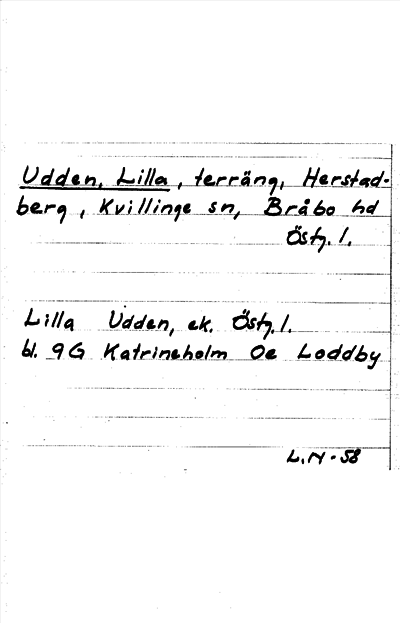 Udden, Lilla, terräng, Herstad-
berg, Kvillinge sn, Bråbo hd
Östg. l.
Lilla Udden, ek. Östg. l.
bl. 9G Katrineholm 0e Loddby
L.N-58